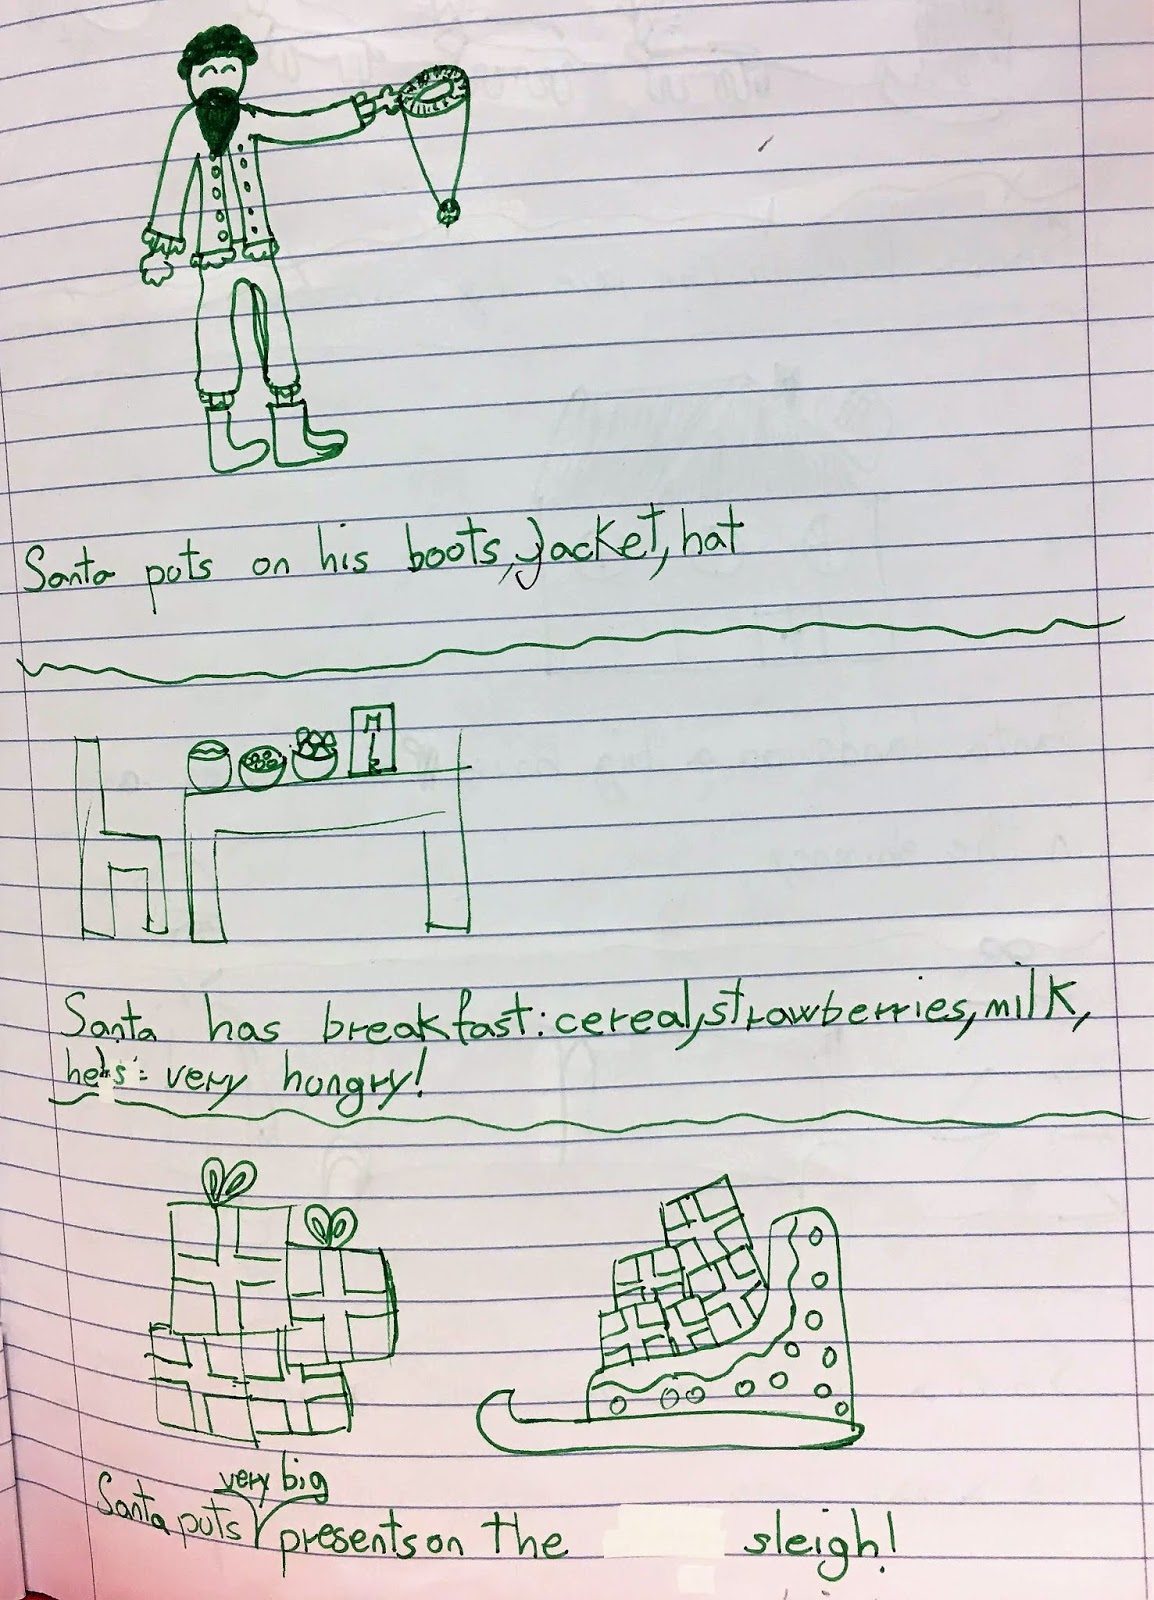 Santa puts on his boots, jacket, hat
MILK
Santa has breakfast: cereal, strawberries, milk,
he's very hungry!
very big
Santa puts presents on the sleigh!